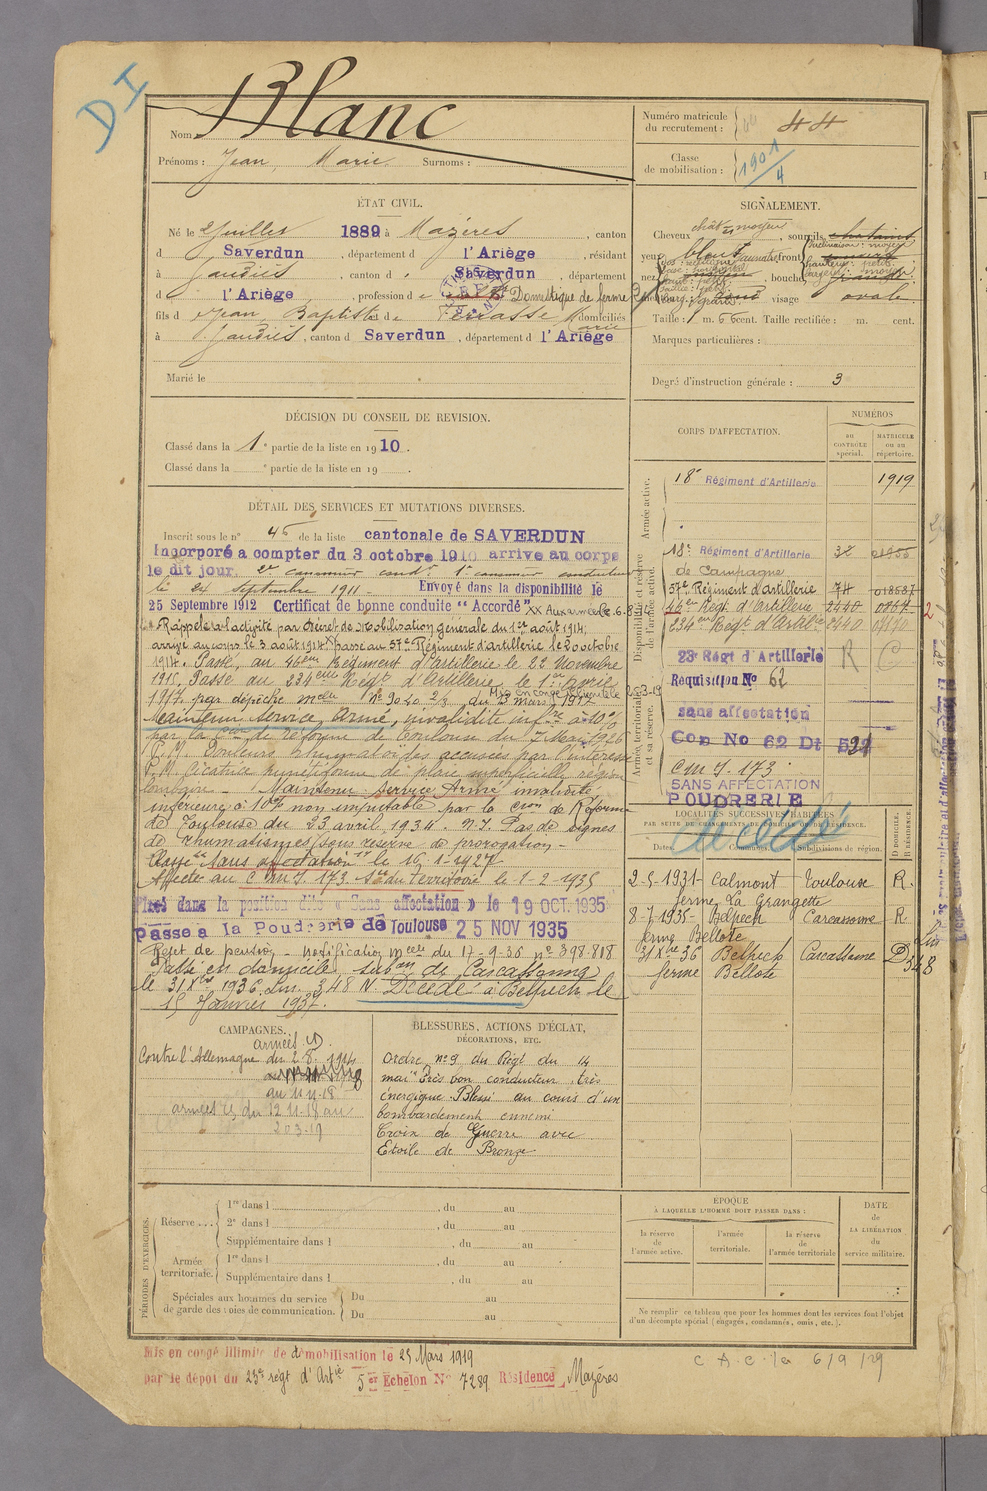 DI
Nom Blanc
Prénoms : Jean, Marie Surnoms :
Numéro matricule
du recrutement : 44
Classe
de mobilisation : 1901/4
ÉTAT CIVIL.
Né le juillet 1889 à Mazères, canton
d Saverdun, département d l'Ariège, résidant
à Gaudiès, canton d Saverdun, département
d l'Ariège, profession de Domestique de ferme
fils d Jean Baptiste et de Terrasse Marie domiciliés
à Gaudiès, canton d Saverdun, département d l'Ariège
Marié le
SIGNALEMENT.
Cheveux chât moyen, sourcils châtains
yeux bleus front
nez bouche
visage ovale
Taille : 1 m. 66 cent. Taille rectifiée : m. cent.
Marques particulières :
Degré d'instruction générale : 3
DÉCISION DU CONSEIL DE REVISION.
Classé dans la 1e partie de la liste en 1910.
Classé dans la e partie de la liste en 19 .
DÉTAIL DES SERVICES ET MUTATIONS DIVERSES.
Inscrit sous le n° 46 de la liste cantonale de SAVERDUN
Incorporé a compter du 3 octobre 1910 arrive au corps
le dit jour. 2e canonnier condr 1e canonnier conducteur
le 24 septembre 1911 - Envoyé dans la disponibilité le
25 Septembre 1912 Certificat de bonne conduite "Accordé"
Rappelé à l'activité par décret de Mobilisation générale du 1er août 1914,
arrivé au corps le 3 août 1914 passe au 57e Régiment d'artillerie le 20 octobre
1914. Passé au 46eme Régiment d'artillerie le 22 Novembre
1915. Passe au 234eme Régt d'Artillerie le 1er Avril
1917 par dépêche melle N° 9040 2/3 du 3 mars 1917
Mis en congé illimité le 25-3-19
Maintenu service Armé, invalidité infre à 10%
par la Con de réforme de Toulouse du 7 Mai 1926
P.M. Douleurs rhumatoïdes accusées par l'intéressé
P.M. Cicatrice punctiforme de plaie superficielle région
lombaire - Maintenu service Armé invalidité
inférieure à 10% non imputable par la Cion de Réforme
de Toulouse du 23 avril 1934. N.I. Pas de signes
de rhumatismes sous réserve de prorogation -
Classé "sans affectation" le 16-1-1927
Affecté au C M I. 173. Son du territoire le 1-2-1935
Placé dans la position dite « Sans affectation » le 19 OCT. 1935
Passe a la Poudrerie de Toulouse 25 NOV 1935
Rejet de pension - notification melle du 17-9-36 n° 398.818
Passé en domicile, subon de Carcassonne
le 31 Xbre 1936. Lm. 348 N. Décédé à Belpech le
15 Janvier 1937.
CORPS D'AFFECTATION.
NUMÉROS
au
CONTRÔLE
spécial.
MATRICULE
ou au
répertoire.
Armée active.
18e Régiment d'Artillerie 1919
Disponibilité et réserve
de l'armée active.
18e Régiment d'Artillerie 32
de Campagne
57e Régiment d'artillerie 74 01858
46e Régt. d'Artillerie 2440
234eme Régt d'Artilie 2440
23e Régt d'Artillerie R C
Armée territoriale
et sa réserve.
Réquisition No 62
sans affectation
Con No 62 Dt
C M I. 173
SANS AFFECTATION
POUDRERIE
décédé
LOCALITÉS SUCCESSIVES HABITÉES
PAR SUITE DE CHANGEMENTS DE DOMICILE OU DE RÉSIDENCE.
Dates. Communes. Subdivisions de région. D DOMICILE. R RÉSIDENCE
2-5-1931- Calmont Toulouse R.
ferme La Grangette
8-7-1935- Belpech Carcassonne R
ferme Bellote
31 Xbre 36 Belpech Carcassonne D
ferme Bellote
Lm 348
CAMPAGNES.
Contre l'Allemagne du 2.8.1914
au 11.11.18
armées du 12.11.18 au
BLESSURES, ACTIONS D'ÉCLAT,
DÉCORATIONS, ETC.
Ordre n° 9 du Régt du 14
mai "Très bon conducteur, très
énergique. Blessé au cours d'un
bombardement ennemi
Croix de Guerre avec
Etoile de Bronze
PÉRIODES D'EXERCICES.
Réserve ... 1re dans l , du au
2e dans l , du au
Supplémentaire dans l , du au
Armée
territoriale. 1re dans l , du au
Supplémentaire dans l , du au
Spéciales aux hommes du service
de garde des voies de communication. Du au
Du au
EPOQUE
À LAQUELLE L'HOMME DOIT PASSER DANS :
la réserve
de
l'armée active.
l'armée
territoriale.
la réserve
de
l'armée territoriale
DATE
de
LA LIBÉRATION
du
service militaire.
Ne remplir ce tableau que pour les hommes dont les services font l'objet
d'un décompte spécial (engagés, condamnés, omis, etc.).
Mis en congé illimité de démobilisation le 25 Mars 1919
par le dépôt du 23e régt d'Artie 5er Echelon N° 7289 Résidence Mazères
C A C 6/9/29